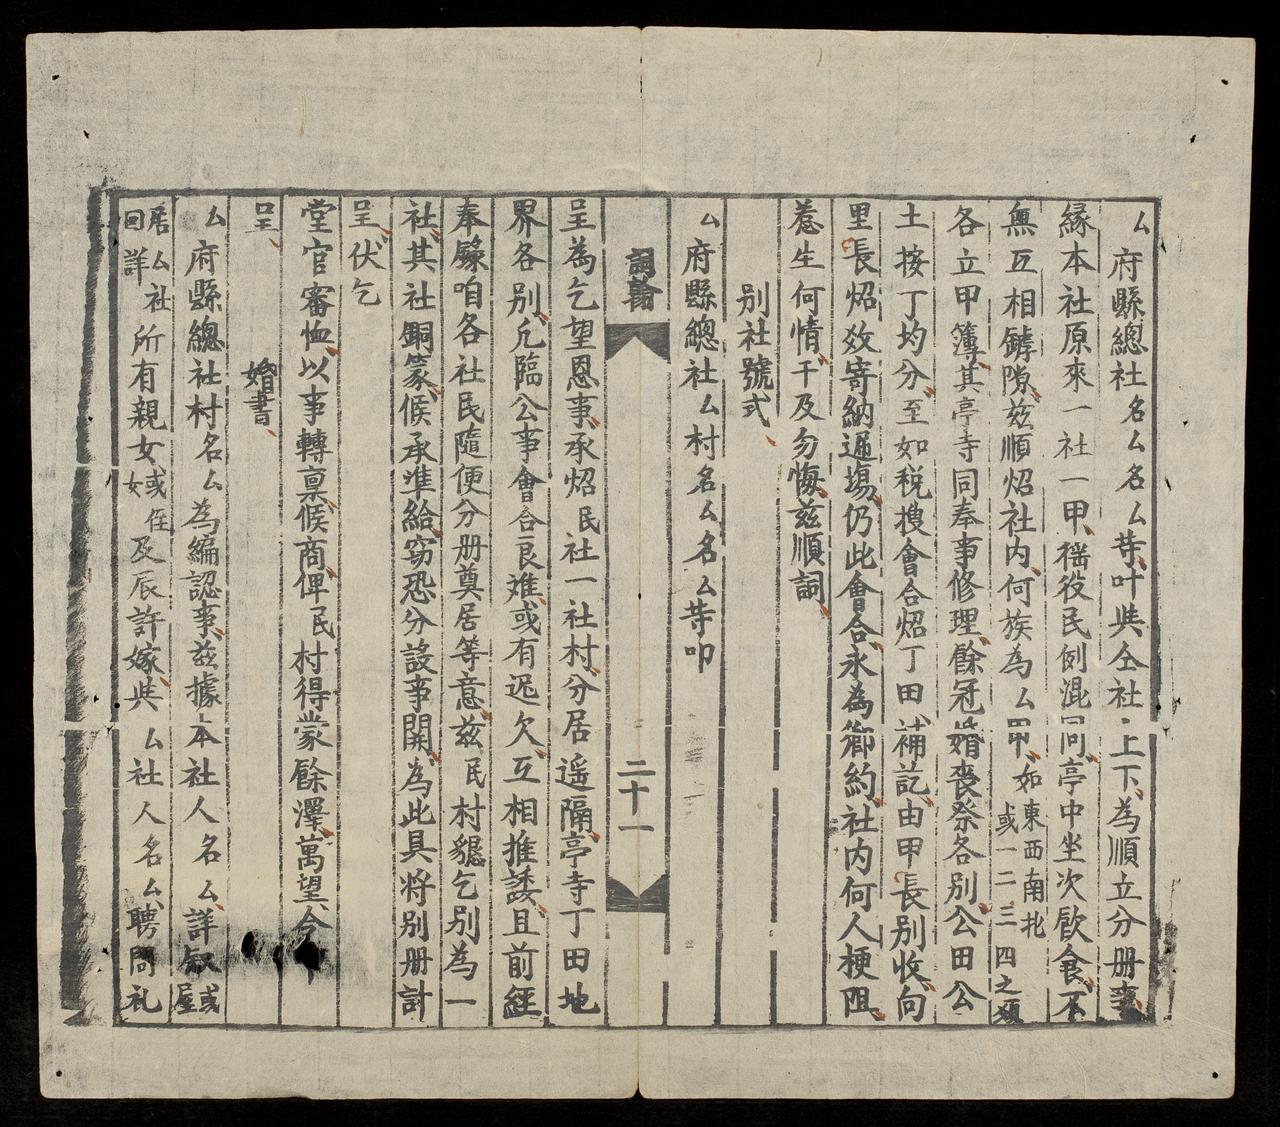 厶府縣總社名厶名厶䓁叶與仝社上下為順立分册事
緣本社原來一社一甲徭役民例混同亭中坐次飲食不
無互相鏬隙玆順炤社内何族為厶甲如東西南北或一二三四之類
各立甲簿其亭寺同奉事修理餘冠婚喪祭各別公田公
土按丁均分至如税搜會合炤丁田補訖由甲長別收向
里長炤效寄納逓場仍此會合永為鄉約社内何人梗阻
惹生何情干及勿悔玆順詞
別社號式
厶府縣總社厶村名厶名厶䓁叩
詞翰
二十一
呈為乞望恩事承炤民社一社村分居遥隔亭寺丁田地
界各別凢臨公事會合艮难或有遅欠互相推諉且前經
奉隊咱各社民隨便分册奠居等意玆民村貔乞別為一
社其社銅篆候承準給窃恐分設事開為此具将別册計
呈伏乞
堂官審恤以事轉稟候商俾民村得蒙餘澤萬望今
呈
婚書
厶府縣總社村名厶為編認事玆據本社人名厶詳叙或屋
居回厶詳社所有親女或女姪及辰許嫁與厶社人名厶聘問礼